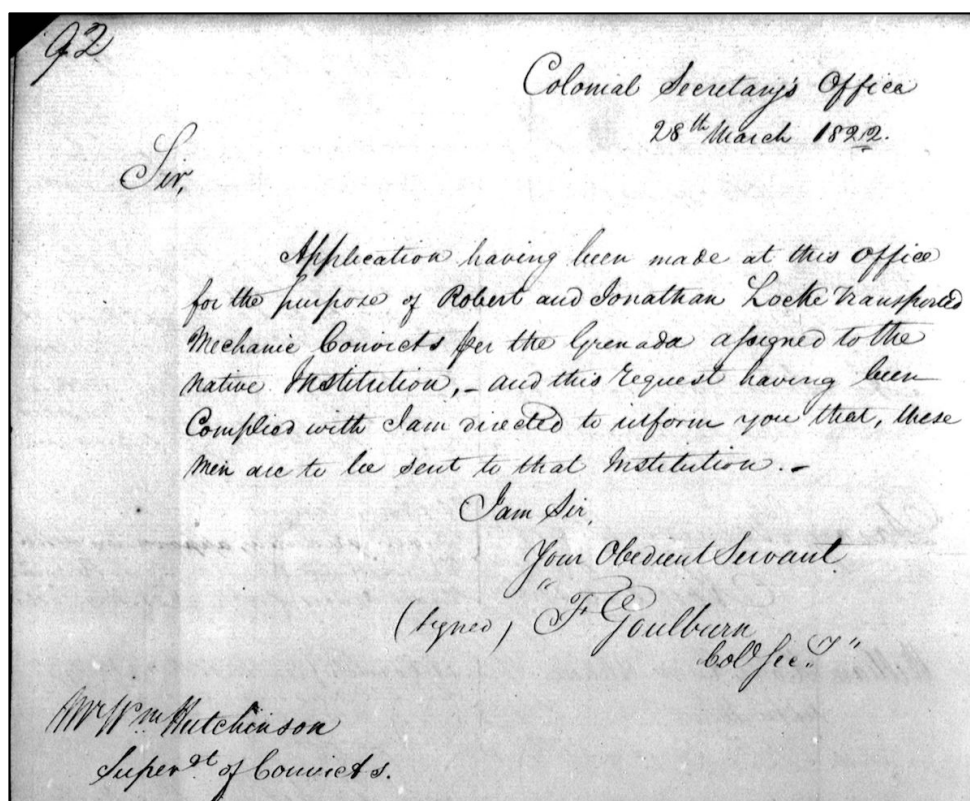 92
Colonial Secretary's Office
28th March 1822.
Sir,
Application having been made at this Office
for the purpose of Robert and Jonathan Locke transported
Mechanic Convicts per the Grenada assigned to the
native Institution,- and this request having been
Complied with I am directed to inform you that, these
Men are to be sent to that Institution.-
I am Sir,
Your Obedient Servant
(signed) "F Goulburn
Col Secy"
Mr Wm Hutchinson
Superdt of Convicts.